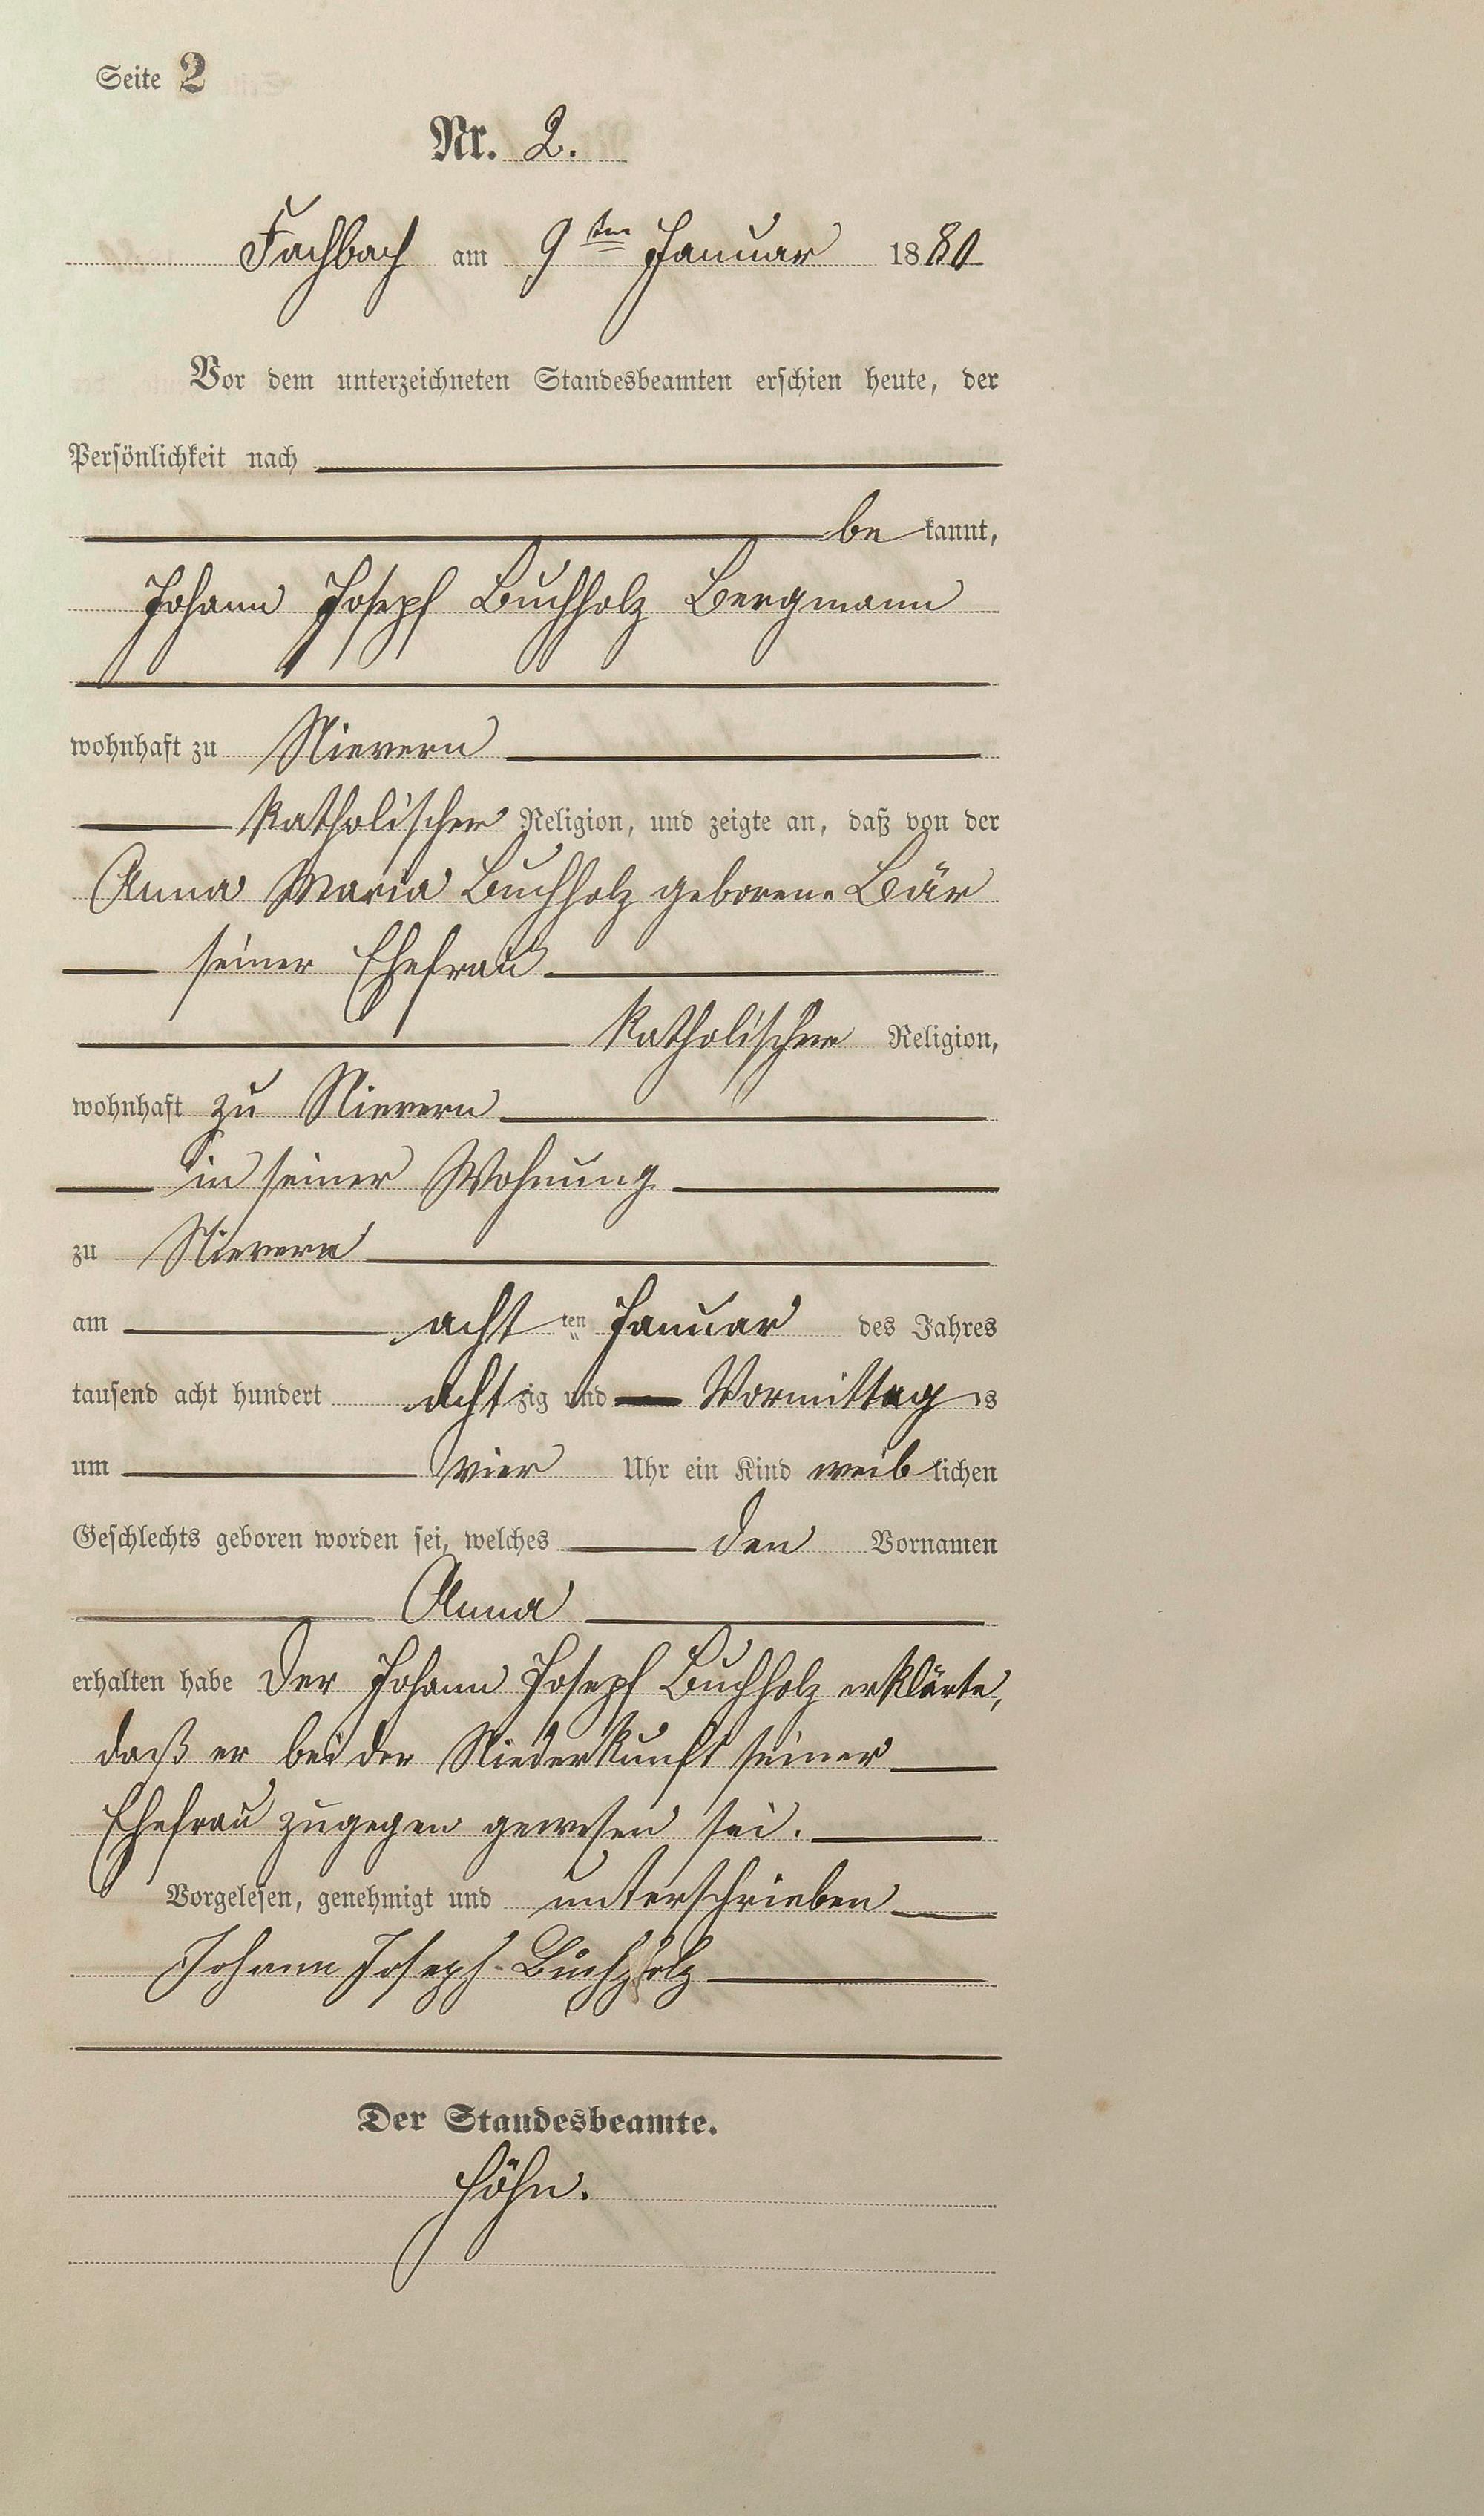 Seite 2
Nr. 2.
Fachbach am 9ten Januar 1880
Vor dem unterzeichneten Standesbeamten erschien heute, der
Persönlichkeit nach
be kannt,
Johann Joseph Buchholz Bergmann
wohnhaft zu Nievern
katholischer Religion, und zeigte an, daß von der
Anna Maria Buchholz geborene Bär
seiner Ehefrau
katholischer Religion,
wohnhaft zu Nievern
in seiner Wohnung
zu Nievern
am acht ten Januar des Jahres
tausend acht hundert acht zig und Vormittag s
um vier Uhr ein Kind weib lichen
Geschlechts geboren worden sei, welches den Vornamen
Anna
erhalten habe Der Johann Joseph Buchholz erklärte,
daß er bei der Niederkunft seiner
Ehefrau zugegen gewesen sei.
Vorgelesen, genehmigt und unterschrieben
Johann Joseph Buchholz
Der Standesbeamte.
Höhn.